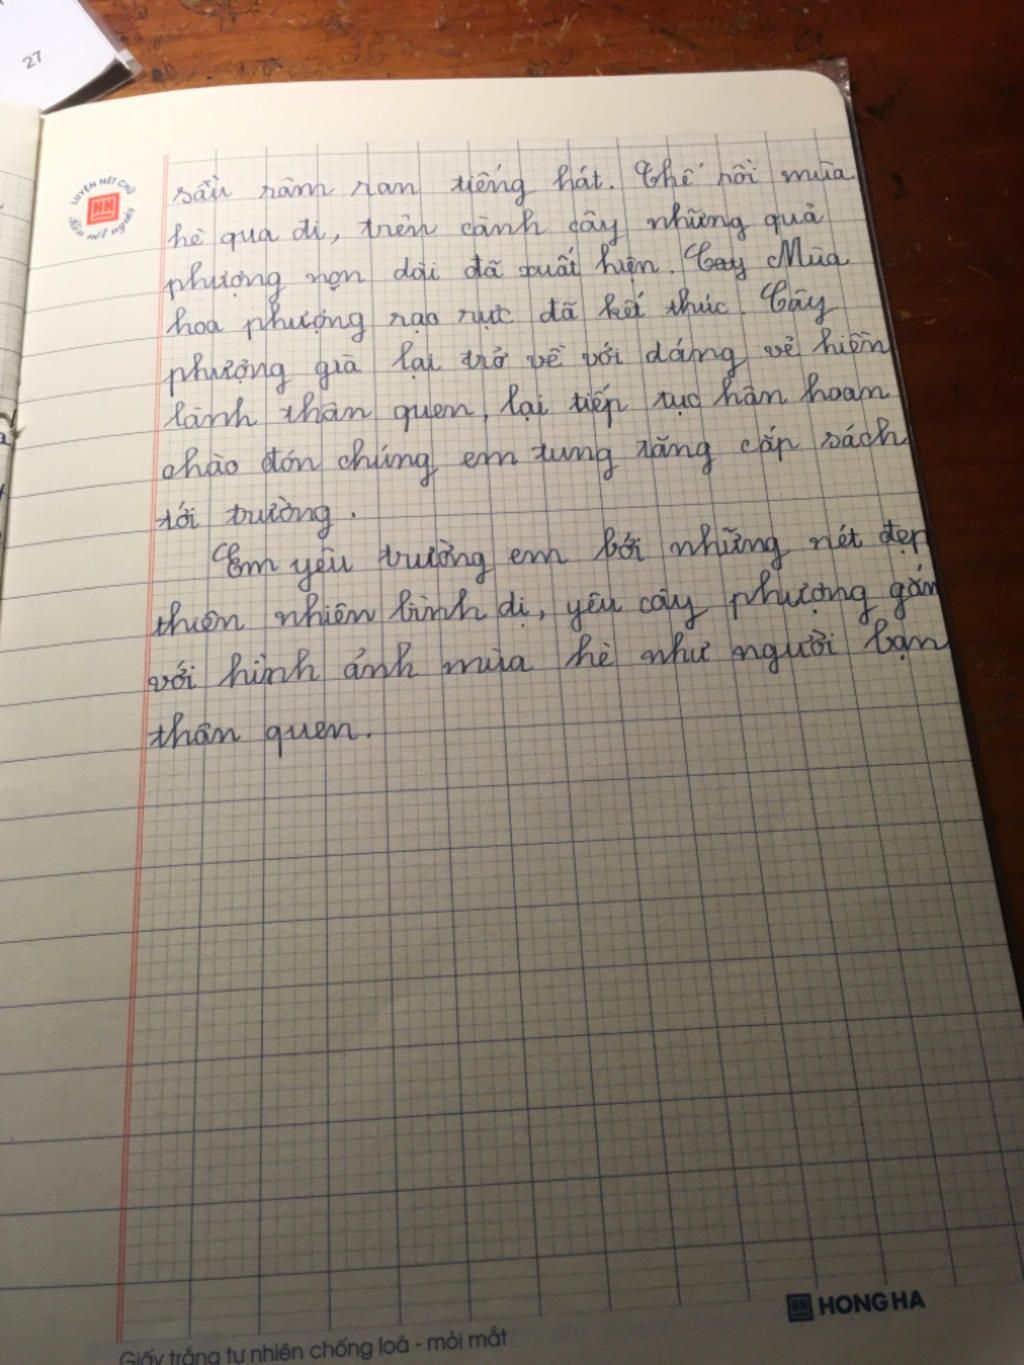 27
LUYỆN NÉT CHỮ
rèn nết người
sầu râm ran tiếng hát. Thế rồi mùa
hè qua đi, trên cành cây những quả
phượng non dài đã xuất hiện. Cay Mùa
hoa phượng rạo rực đã kết thúc. Cây
phượng già lại trở về với dáng vẻ hiền
lành thân quen, lại tiếp tục hân hoan
chào đón chúng em tung tăng cắp sách
tới trường.
Em yêu trường em bởi những nét đẹp
thiên nhiên bình dị, yêu cây phượng gắn
với hình ảnh mùa hè như người bạn
thân quen.
HONG HA
Giấy trắng tự nhiên chống loá - mỏi mắt